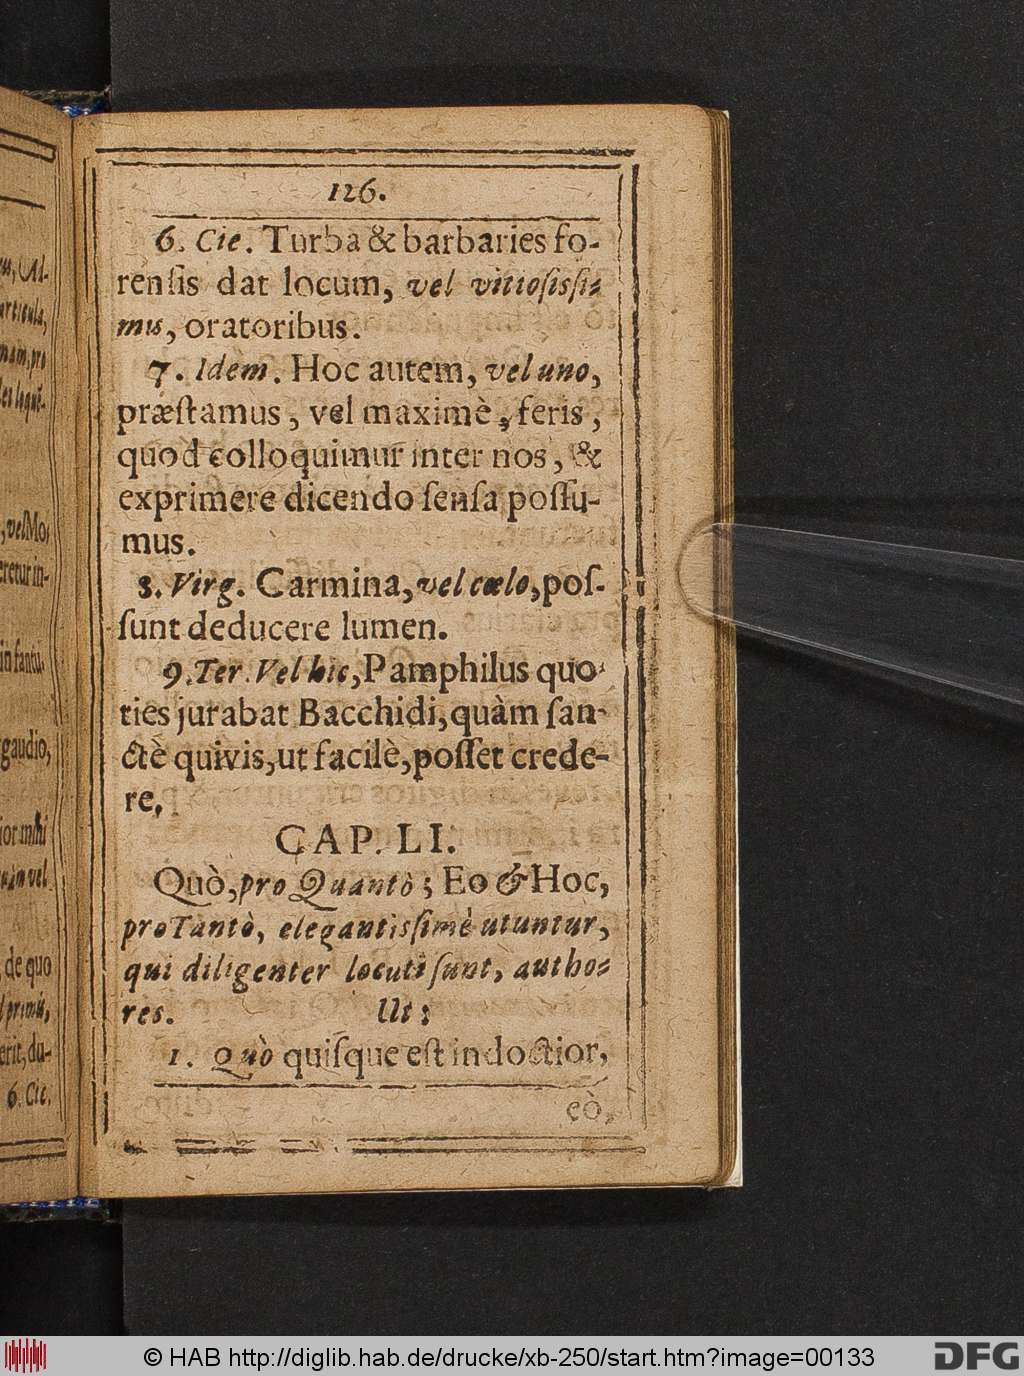 126.
6. Cie. Turba & barbaries fo-
rensis dat locum, vel vitiosissi-
mus, oratoribus.
7. Idem. Hoc autem, vel uno,
præstamus, vel maximè, feris,
quod colloquimur inter nos, &
exprimere dicendo sensa possu-
mus.
8. Virg. Carmina, vel cœlo, pos-
sunt deducere lumen.
9. Ter. Vel hic, Pamphilus quo-
ties jurabat Bacchidi, quàm san-
ctè quivis, ut facilè, posset crede-
re,
CAP. LI.
Quò, pro Quantò; Eo & Hoc,
pro Tantò, elegantissimè utuntur,
qui diligenter locuti sunt, autho-
res. Ut:
1. Quò quisque est indoctior,
eò,
, vel Mo,
eretur in-
gaudio,
ior mihi
de quo
erit, du-
6. Cic.
© HAB http://diglib.hab.de/drucke/xb-250/start.htm?image=00133
DFG